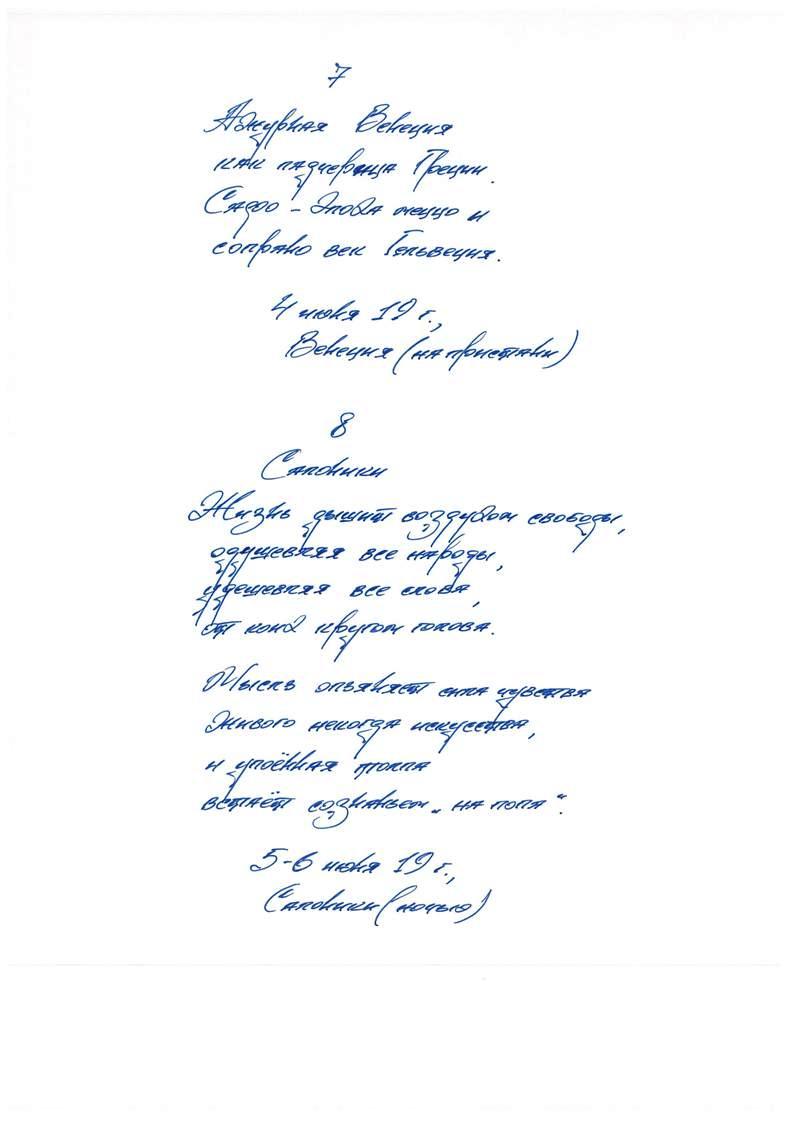 7
Ажурная Венеция
как падчерица Греции.
Садо – эпоха меццо и
сопрано век Гельвеция.
4 июня 19 г.,
Венеция (на пристани)
8
Салоники
Жизнь дышит воздухом свободы,
одушевляя все народы,
удешевляя все слова,
от коих кругом голова.
Мысль опьяняет сила чувства
живого некогда искусства,
и упоённая толпа
встаёт сознаньем „на попа“.
5-6 июня 19 г.,
Салоники (ночью)